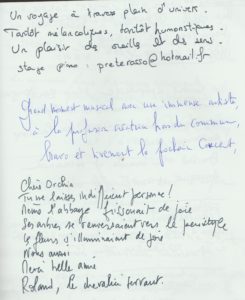 Un voyage à travers plein d'univers.
Tantôt mélancoliques, tantôt humoristiques.
Un plaisir des oreilles et des sens.
stage piano : preterosso@hotmail.fr
Grand moment musical avec une immense artiste,
à la profusion créatrice hors du commun,
bravo et vivement le prochain Concert,
Chère
Tu ne laisses indifférent personne !
Même l'abbaye frissonnait de joie
Les arbres se renversaient vers le péristyle
Les fleurs s'illuminaient de joie
Nous aussi
Merci belle âme
Roland, le chevalier servant.